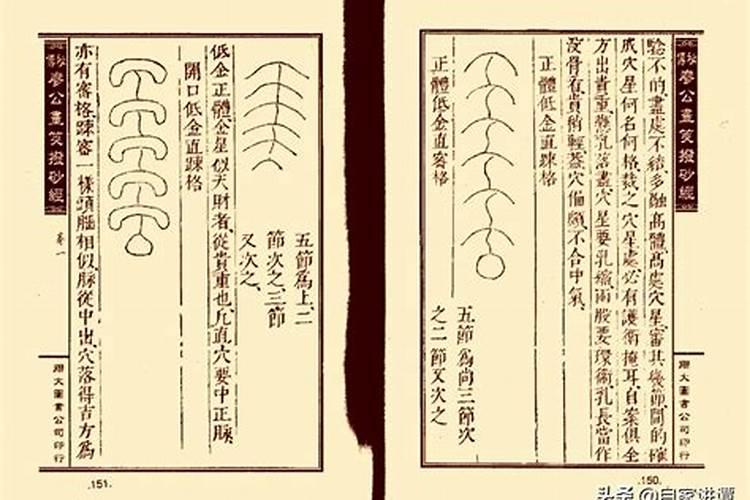 秘傳廖公畫筴撥砂經
驗不的畫處不結多融高體高處穴星審其幾節間的確
成穴星何名何格裁之穴星處必有護衛掩耳自案俱全
方出貴重懸乳落盡穴星要乳瘜兩股要環衛乳長當作
沒骨有貴術輕蓋穴偏頗不合中氣
正體低金直踈格
正體低金直窩格
五節為尚三節次
之二節又次之
聯大圖書公司印行
.150.
秘傳廖公畫筴撥砂經
卷一
五節為上二
節次之三節
又次之
低金正體金星似天財者從貴重也凡直穴要中正脉
開口低金直踈格
亦有窩格踈窩一樣頭腦相似脉從中出穴落得吉方為
聯大圖書公司印行
.151.
头条 @自家洪譚